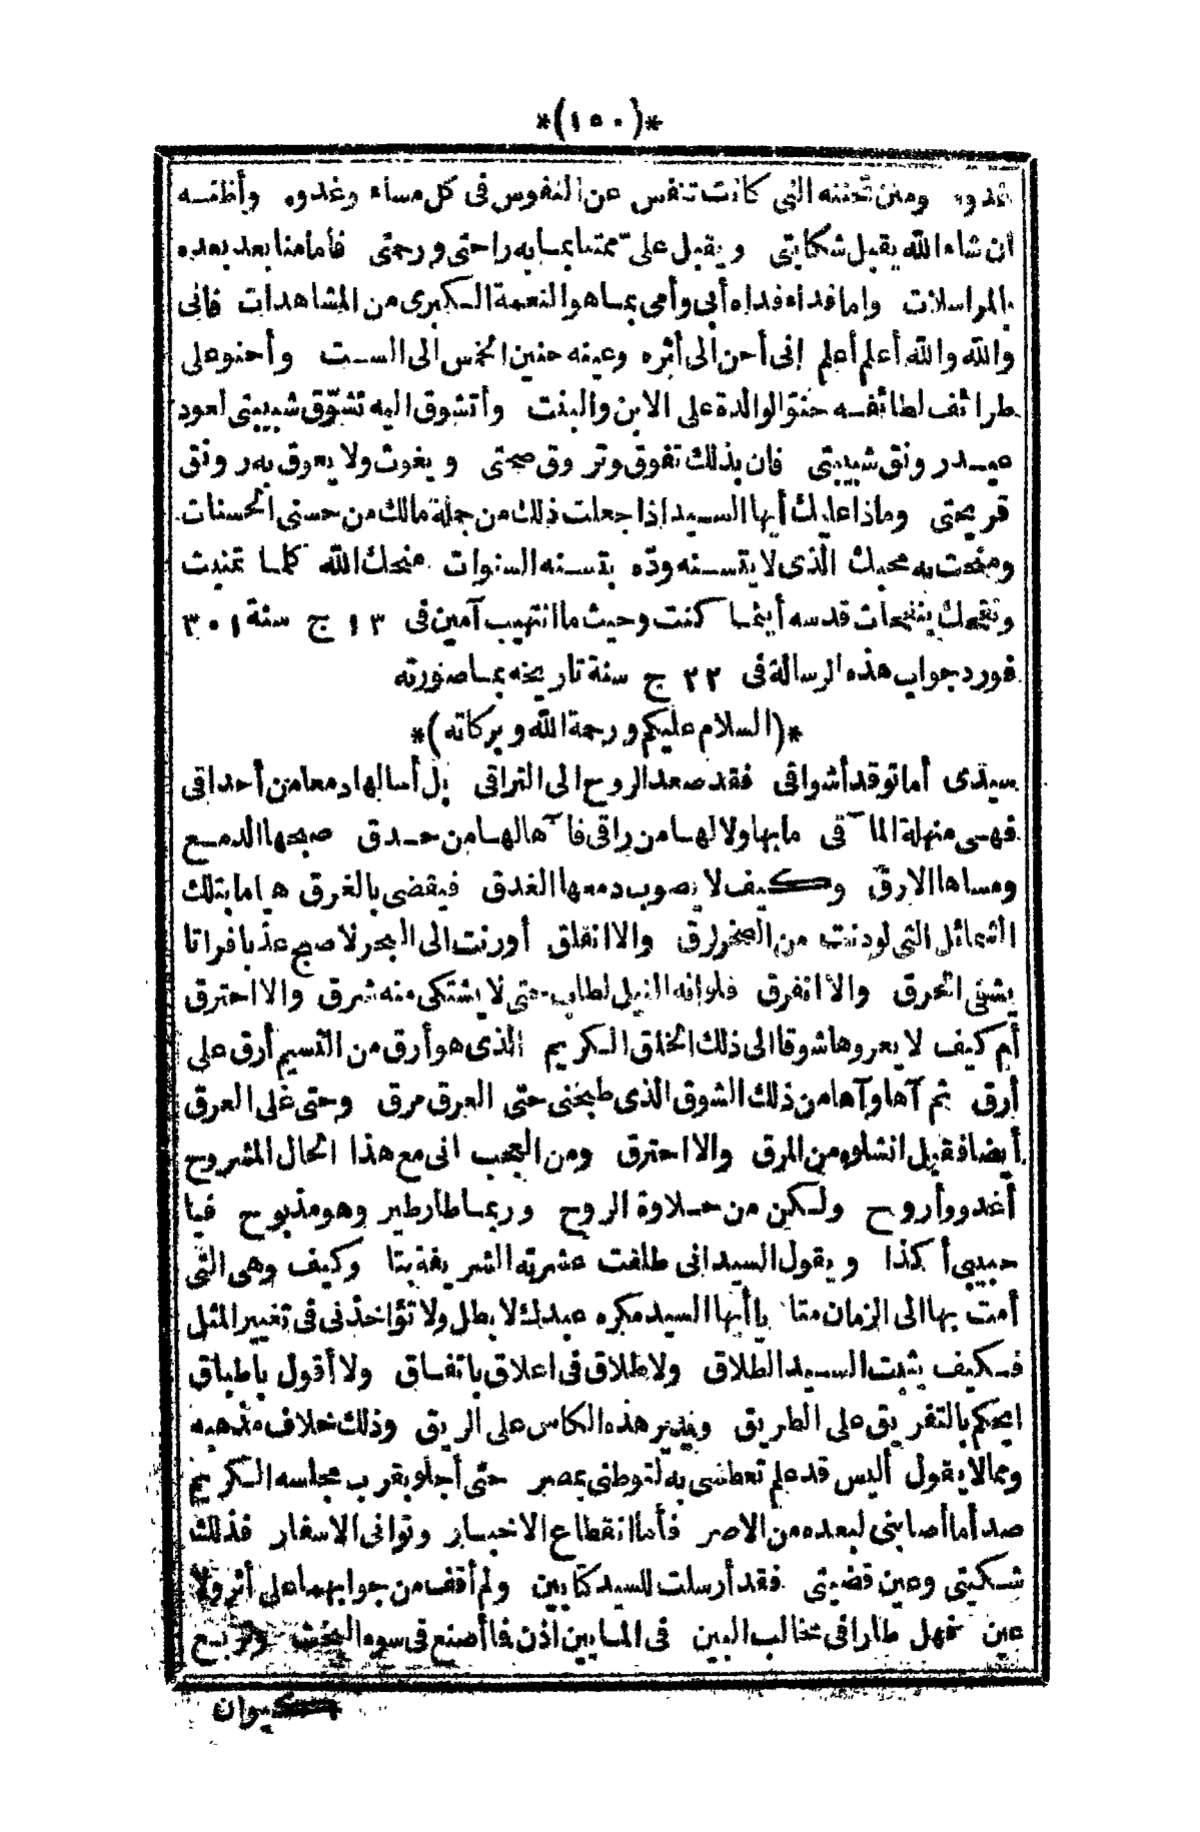 *(١٥٠)*
غدوه ومنن تحننه التى كانت تنفس عن النفوس فى كل مساء وغدوه وأظنه
ان شاء الله يقبل شكايتى ويقبل علىّ ممتنا بما به راحتى ورحمتى فامامنا بعد بعده
بالمراسلات وإما فداء فداه أبى وأمى بما هو النعمة الكبرى من المشاهدات فانى
والله والله أعلم أعلم إنى أحن الى أثره وعينه حنين الخمس الى الست وأحنو على
طرائف لطائفه حنوّ الوالدة على الابن والبنت وأتشوق اليه تشوّق شبيبتى لعود
رونق شبيبتى فان بذلك تفوق وتروق صحتى ويغوث ولا يعوق به رونق
قريحتى وماذا عليك أيها السيد اذا جعلت ذلك من جملة مالك من حسنى الحسنات
ومنحت به محبك الذى لا يتسنه ودّه بتسنه السنوات منحك الله كلما تمنيت
ونفحك بنفحات قدسه أينما كنت وحيث ما انتهيت آمين فى ١٣ ج سنة ٣٠١
فورد جواب هذه الرسالة فى ٢٢ ج سنة تاريخه بما صورته
*(السلام عليكم ورحمة الله وبركاته)*
سيدى أما توقد أشواقى فقد صعد الروح الى التراقى بل أسالها دمعا من أحداقى
فهى منهلة المآقى مابها ولا لها من راقى فآها لها من حدق صبحها الدمع
ومساها الارق وكيف لا يصوب دمعها الغدق فيقضى بالغرق هياما بتلك
الشمائل التى لو دنت من الصخر لرق والا انفلق أو رنت الى البحر لاصبح عذبا فراتا
يشفى الحرق والا انفرق فلو انه النيل لطاب حتى لا يشتكى منه شرق والا احترق
أم كيف لا يعروها شوقا الى ذلك الخلق الكريم الذى هو أرق من النسيم أرق على
أرق ثم آها وآها من ذلك الشوق الذى طبخنى حتى العرق مرق وحتى غلى العرق
أيضا فقيل انشلوه من المرق والا احترق ومن العجب انى مع هذا الحال المشروح
أغدو وأروح ولكن من حلاوة الروح وربما طار طير وهو مذبوح فيا
حبيبى أكذا ويقول السيد انى طلقت عشرته الشريفة بتا وكيف وهى التى
أمت بها الى الزمان متا يا أيها السيد مكره عبدك لا بطل ولا تؤاخذنى فى تغيير المثل
فكيف يثبت السيد الطلاق ولا طلاق فى اغلاق باتفاق ولا أقول باطباق
ايحكم بالتفريق على الطريق ويدير هذه الكاس على الريق وذلك خلاف مذهبه
ومما لا يقول أليس قد علم تعطشى به لتوطنى بمصر حتى أجلو بقرب مجلسه الكريم
صدأ ما أصابنى لبعده من الاصر فأما انقطاع الاخبار وتوافى الاسفار فذلك
شكيتى وعين قضيتى فقد أرسلت للسيد كتابين ولم أقف من جوابهما على أثر ولا
عين فهل طارا فى مخالب البين فى المابين اذن فما أصنع فى سوء البخت وتربيع
كيوان